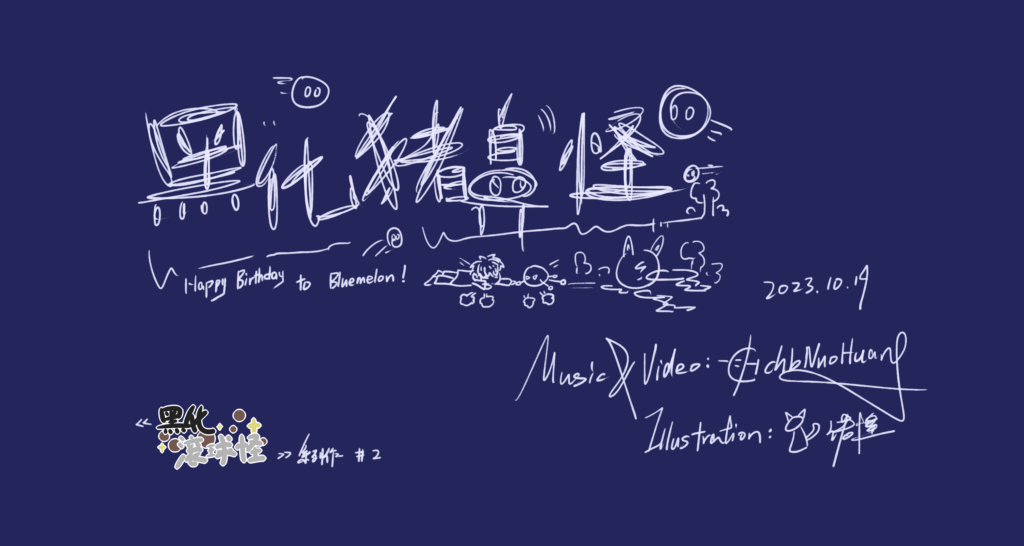 黑化猪鼻怪
Happy Birthday to Bluemelon!
2023.10.14
Music & Video:
Illustration:
<<黑化滚球怪>>系列作 #2